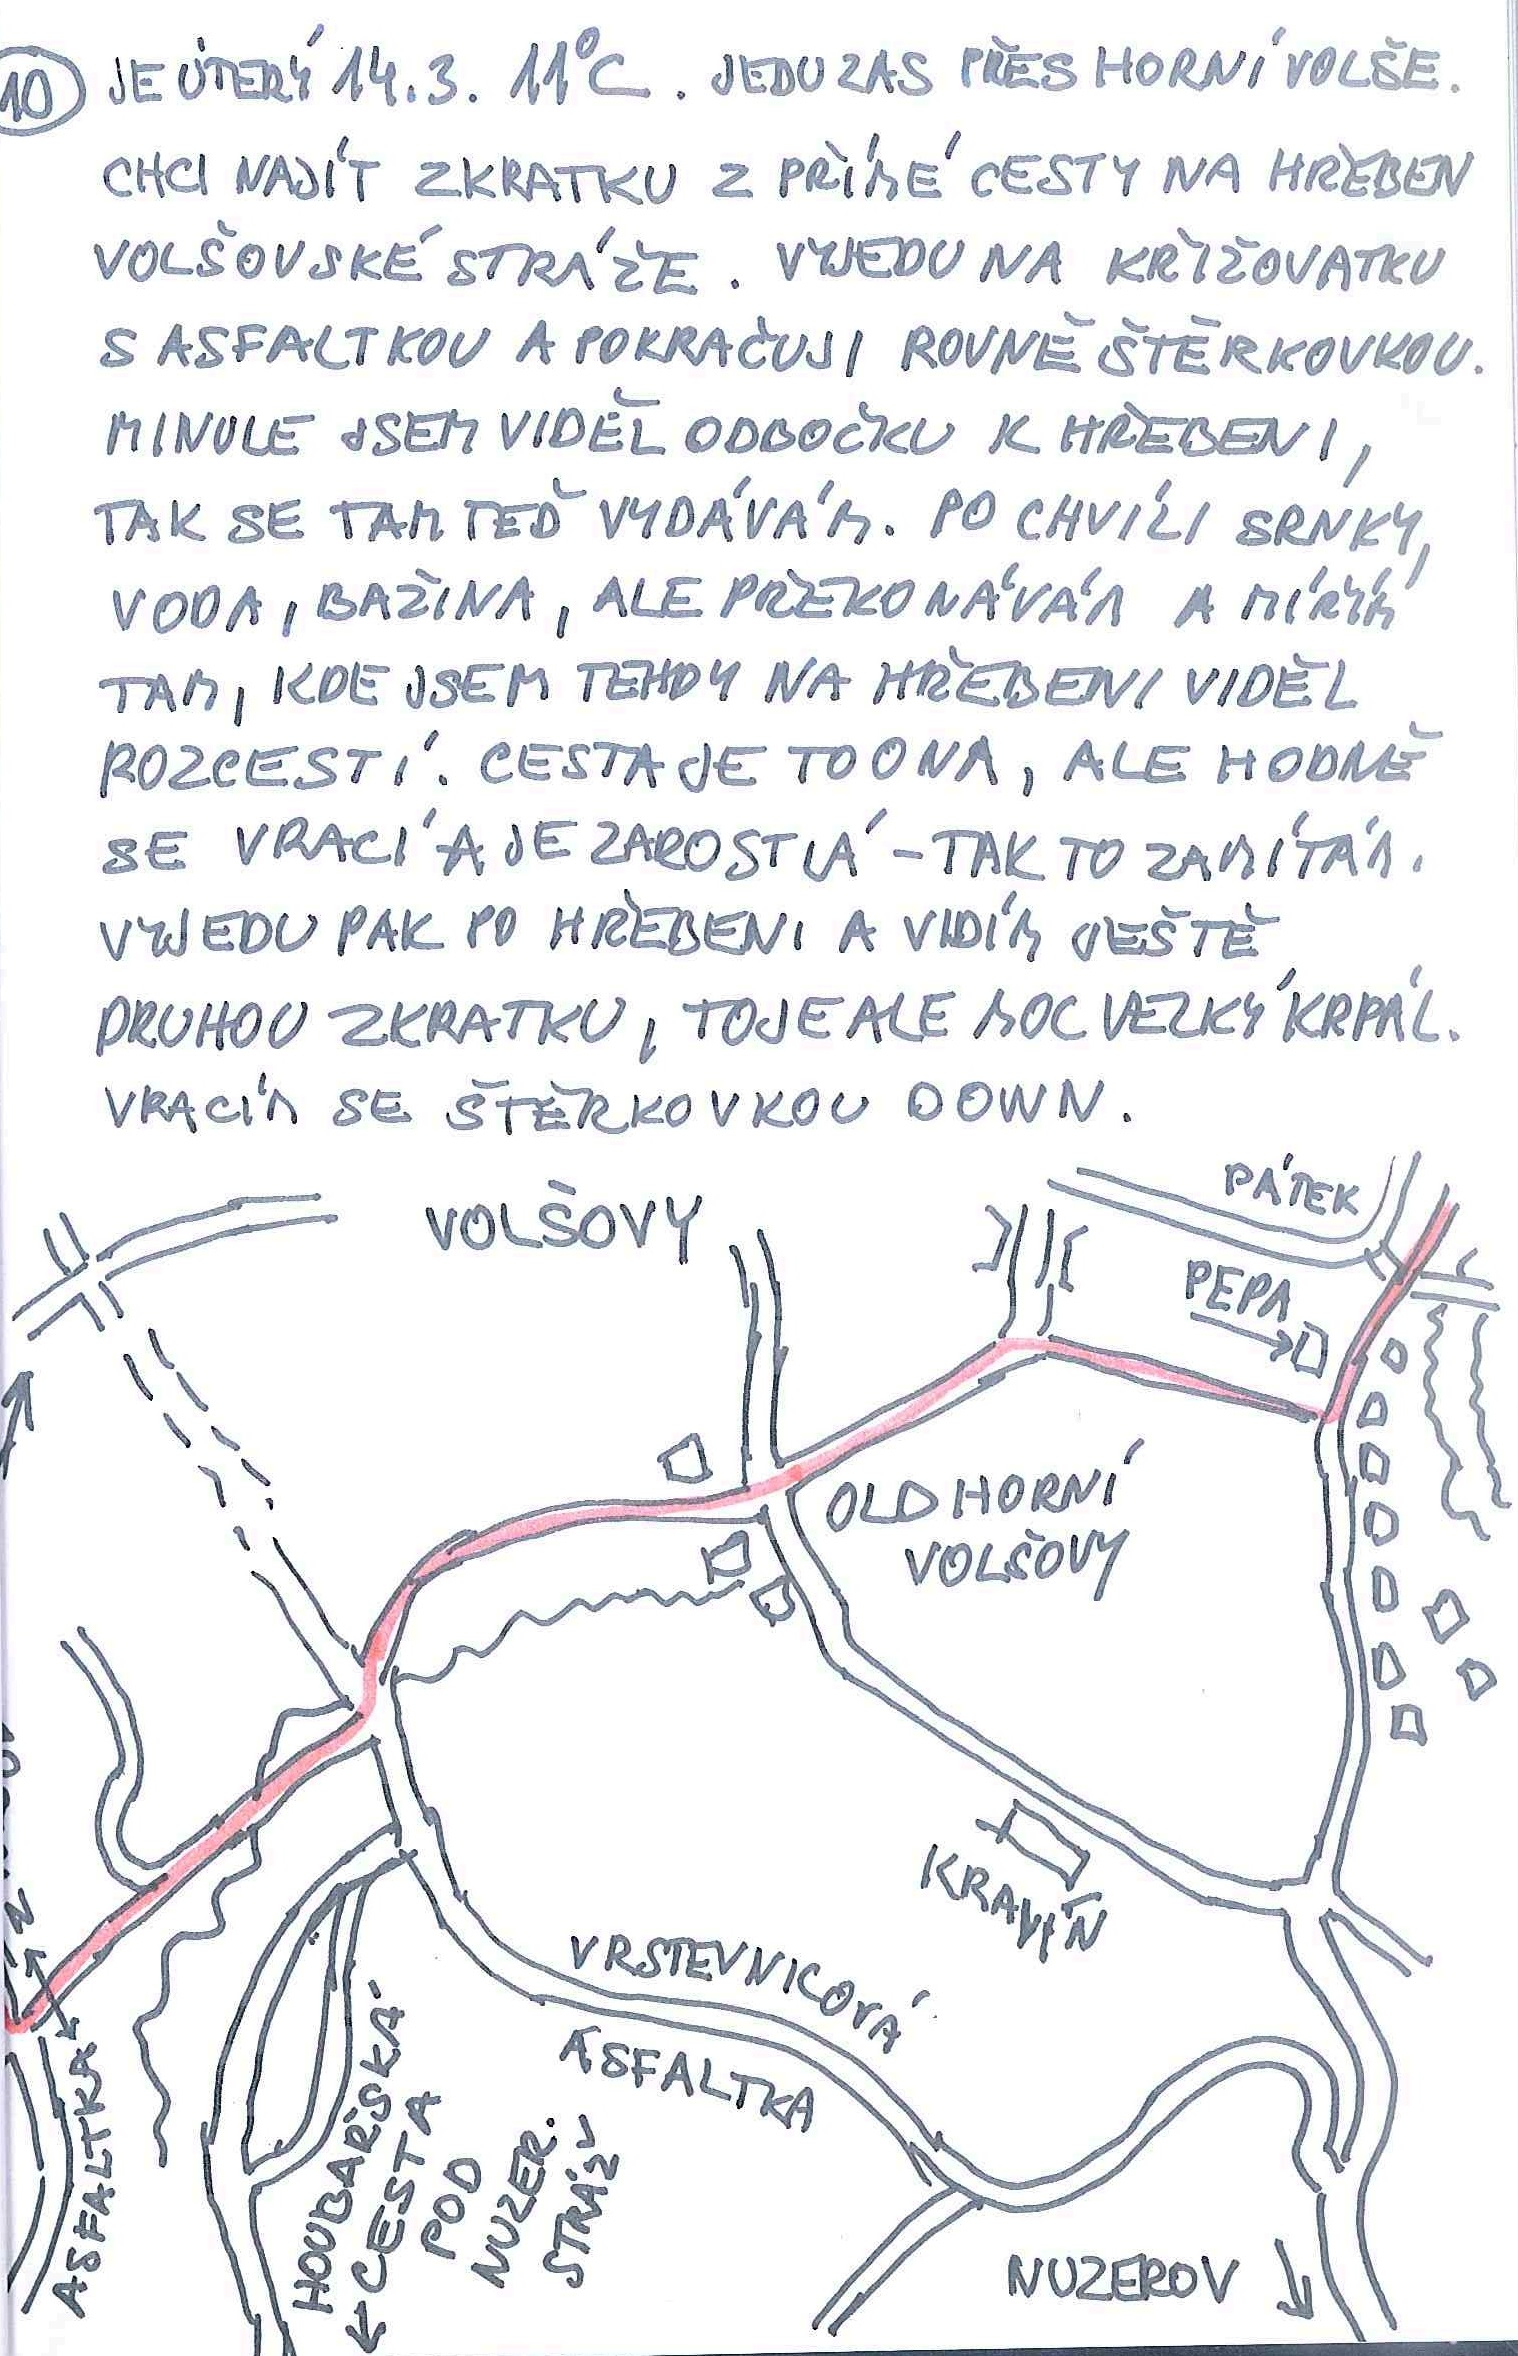 10 JE ÚTERÝ 14.3. 11°C. JEDU ZAS PŘES HORNÍ VOLŠE.
CHCI NAJÍT ZKRATKU Z PŘÍMÉ CESTY NA HŘEBEN
VOLŠOVSKÉ STRÁŽE. VYJEDU NA KŘIŽOVATKU
S ASFALTKOU A POKRAČUJI ROVNĚ ŠTĚRKOVKOU.
MINULE JSEM VIDĚL ODBOČKU K HŘEBENI,
TAK SE TAM TEĎ VYDÁVÁM. PO CHVÍLI SRNKY,
VODA, BAŽINA, ALE PŘEKONÁVÁM A MÍŘÍM
TAM, KDE JSEM TEHDY NA HŘEBENI VIDĚL
ROZCESTÍ. CESTA JE TO ONA, ALE HODNĚ
SE VRACÍ A JE ZAROSTLÁ - TAK TO ZAMÍTÁM.
VYJEDU PAK PO HŘEBENI A VIDÍM JEŠTĚ
DRUHOU ZKRATKU, TO JE ALE MOC VELKÝ KRPÁL.
VRACÍM SE ŠTĚRKOVKOU DOWN.
VOLŠOVY
PÁTEK
PEPA
OLD HORNÍ
VOLŠOVY
KRAVÍN
VRSTEVNICOVÁ
ASFALTKA
ASFALTKA
HOUBAŘSKÁ
CESTA
POD
NUZER.
STRÁŽÍ
NUZEROV